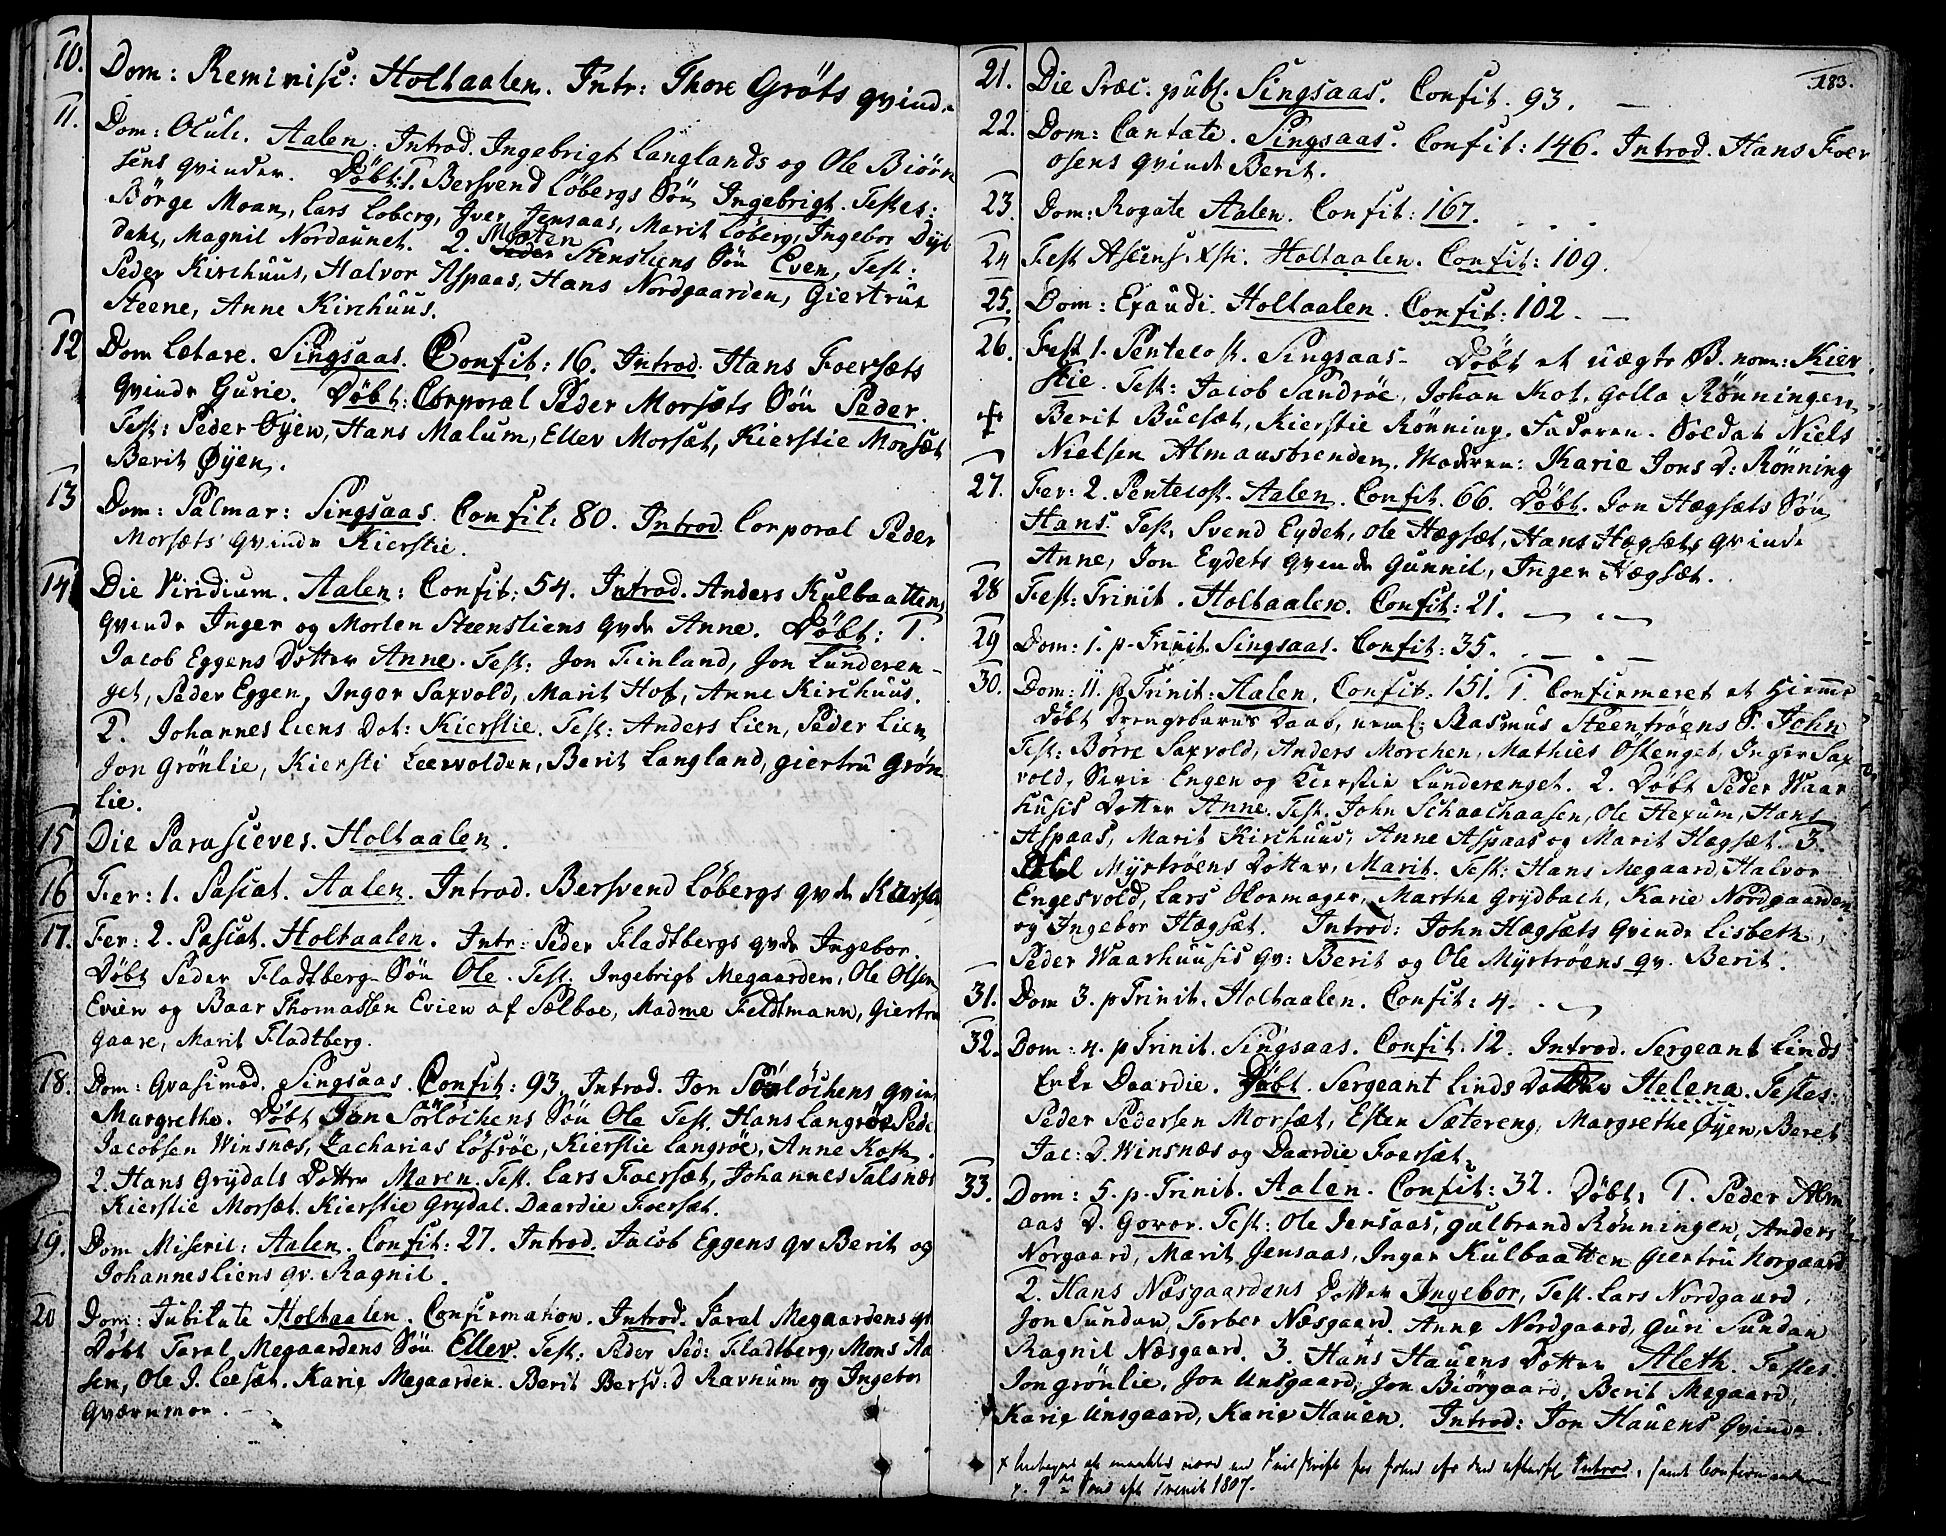 10. Dom: Reminisc: Holtaalen. Intr: Thore Gröts qvinde
11. Dom: Oculi. Aalen. Introd. Ingebrigt Langlands og Ole Biörn
sens qvinder. Döbt: 1. Bersvend Löbergs Sön Ingebrigt. Testes:
Börge Moan, Lars Loberg, Iver Jensaas, Marit Löberg, Ingebor Dyb
dahl, Magnil Nordaunet. 2. Morten Stensliens Sön Even, Test:
Peder Kirchuus, Halvor Aspaas, Hans Nordgaarden, Giertrue
Steene, Anne Kirchuus.
12 Dom Lætare. Singsaas. Confit: 16. Introd. Hans Foersæts
qvinde Gurie. Döbt: Corporal Peder Morsæts Sön Peder.
Test: Peder Öyen, Hans Malum, Ellev Morsæt, Kierstie Morsæt
Berit Öyen.
13 Dom: Palmar: Singsaas. Confit: 80. Introd. Corporal Peder
Morsæts qvinde Kierstie.
14 Die Viridium. Aalen: Confit: 54. Introd. Anders Kulbaattens
qvinde Inger og Morten Steensliens qvde Anne. Döbt: 1.
Jacob Eggens Dotter Anne. Test: Jon Finland, Jon Lunderen-
get, Peder Eggen, Inger Saxvold, Marit Hof, Anne Kirchuus.
2. Johannes Liens Dot: Kierstie. Test: Anders Lien, Peder Lien
Jon Grönlie, Kiersti Leervolden, Berit Langland, giertru Grön
lie.
15 Die Parasceves. Holtaalen.
16 Fer: 1. Pascat. Aalen. Introd. Bersvend Löbergs qvde Kierst
17. Fer: 2. Pascat. Holtaalen. Intr: Peder Fladtbergs qvde Ingebor.
Döbt Peder Fladtberg Sön Ole. Test: Ingebrigt Megaarden, Ole Olsen
Evien og Baar Thomassen Evien af Sælboe, Madme Feldtmann, Giertru
gaare, Marit Fladtberg.
18. Dom: Qvasimod. Singsaas. Confit: 93. Introd. Jon Sörlöchens qvin
Margrethe. Döbt Jon Sörlöchens Sön Ole Test. Hans Langröe Ped
Jacobsen Winsnæs, Zacharias Löfröe, Kierstie Langröe, Anne Kosk.
2. Hans Grydals Dotter Maren. Test. Lars Foersæt, Johannes Talsnæs
Kierstie Morsæt. Kierstie Grydal. Daardie Foersæt.
19. Dom Miseric: Aalen. Confit: 27. Introd. Jacob Eggens qv Berit og
Johannes Liens qv. Ragnil.
20 Dom: Jubilate Holtaalen. Confirmation. Introd. Taral Megaardens qv
Döbt Taral Megaardens Sön Ellev. Test: Peder Ped: Fladtberg, Mons Aa
sen, Ole J. Leesæt. Karie Megaarden. Berit Bersv: d Ravnum og Ingebor
Qværnmoe.
183.
21. Die Præc. publ. Singsaas. Confit. 93.
22. Dom: Cantate. Singsaas. Confit: 146. Introd. Hans Foer
osens qvinde Berit.
23. Dom: Rogate Aalen. Confit: 167.
24 Fest Ascens. Xsti. Holtaalen. Confit: 109.
25. Dom: Exaudi. Holtaalen. Confit: 102.
26. Fest 1. Pentecost. Singsaas. Döbt et uægte B. nom: Kier
stie. Test: Jacob Sandröe, Johan Kol. Golla Rönningen
Berit Buesæt, Kierstie Rönning. Faderen. Soldat Niels
Nielsen Almaasbrenden. Modren: Karie Jons D: Rönning
27. Fer: 2. Pentecost. Aalen. Confit. 66. Döbt. Jon Hægsæts Sön
Hans. Test. Svend Eydet, Ole Hægset, Hans Hægsæts qvinde
Anne, Jon Eydets qvinde Gunnil, Inger Hægsæt.
28 Fest: Trinit. Holtaalen. Confit: 21.
29 Dom: 1. p. Trinit. Singsaas. Confit: 35.
30. Dom: 11. p Trinit: Aalen. Confit: 151. 1. Confirmeret et hieme
döbt Drengebarns Daab, neml: Rasmus Steentröens S. John
Test: Börre Saxvold, Anders Morchen, Mathies Östenget, Inger Sax
vold, Siri Engen og Kierstie Lunderenget. 2. Döbt Peder Waar
husis Dotter Anne. Test. John Schaalhaasen, Ole Hexum, Hans
Aspaas, Marit Kirchuus, Anne Aspaas og Marit Hægsæt. 3.
Myrtröens Dotter, Marit. Test: Hans Megaard, Halvor
Engesvold, Lars Olormager, Martha Grydbach, Karie Nordgaarden
og Ingebor Hægsæt. Introd: John Hægsæts qvinde Lisbeth,
Peder Waarhuusis qv: Berit og Ole Myrtröens qv. Berit.
31. Dom 3. p Trinit. Holtaalen. Confit: 4.
32. Dom: 4. p Trinit. Singsaas. Confit. 12. Introd. Sergeant Linds
Enke Daardie. Döbt. Sergeant Linds Dotter Helena. Testes:
Peder Pedersen Morsæt, Esten Sætereng, Margrethe Öyen, Beret
Jac: D. Winsnæs og Daardie Foersæt.
33. Dom: 5. p. Trinit. Aalen. Confit: 32. Döbt: 1. Peder Alm
aas D. Gover. Test: Ole Jensaas, gulbrand Rönningen, Anders
Norgaard, Marit Jensaas, Inger Kulbaatten giertru Norgaard
2. Hans Næsgaardens Dotter Ingebor, Test. Lars Nordgaard,
Jon Sundan, Torber Næsgaard. Anne Nordgaard, Guri Sundan
Ragnil Næsgaard. 3. Hans Hauens Dotter Aleth. Testes.
Jon grönlie, Jon Unsgaard, Jon Biörgaard, Berit Megaard,
Karie Unsgaard, Karie Hauen. Introd: Jon Hauens Qvinde.
Introd, samt
1807.